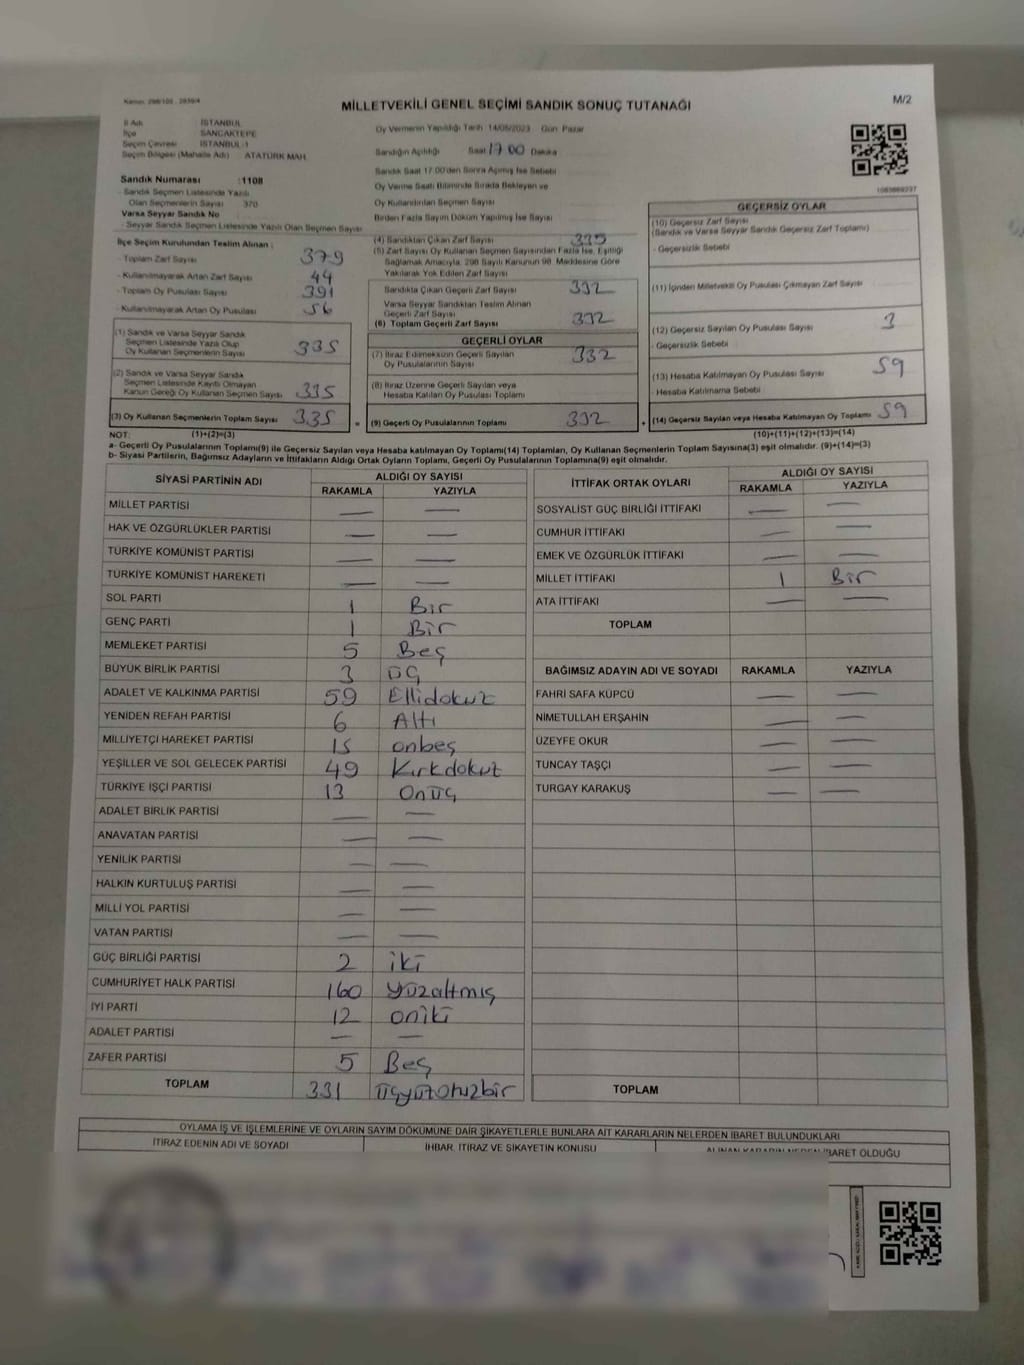 Kanun: 298/105 - 2839/4
MİLLETVEKİLİ GENEL SEÇİMİ SANDIK SONUÇ TUTANAĞI
M/2
İl Adı : İSTANBUL
İlçe : SANCAKTEPE
Seçim Çevresi : İSTANBUL-1
Seçim Bölgesi (Mahalle Adı) : ATATÜRK MAH.
Oy Vermenin Yapıldığı Tarih 14/05/2023 Gün Pazar
Sandığın Açıldığı Saat 17 00 Dakika
Sandık Saat 17.00'den Sonra Açılmış İse Sebebi
Oy Verme Saati Bitiminde Sırada Bekleyen ve
Oy Kullandırılan Seçmen Sayısı
Birden Fazla Sayım Döküm Yapılmış İse Sayısı
Sandık Numarası : 1108
- Sandık Seçmen Listesinde Yazılı
Olan Seçmenlerin Sayısı 370
Varsa Seyyar Sandık No
- Seyyar Sandık Seçmen Listesinde Yazılı Olan Seçmen Sayısı
İlçe Seçim Kurulundan Teslim Alınan :
- Toplam Zarf Sayısı 379
- Kullanılmayarak Artan Zarf Sayısı 44
- Toplam Oy Pusulası Sayısı 391
- Kullanılmayarak Artan Oy Pusulası 56
(1) Sandık ve Varsa Seyyar Sandık
Seçmen Listesinde Yazılı Olup
Oy Kullanan Seçmenlerin Sayısı 335
(2) Sandık ve Varsa Seyyar Sandık
Seçmen Listesinde Kayıtlı Olmayan
Kanun Gereği Oy Kullanan Seçmen Sayısı 335
(3) Oy Kullanan Seçmenlerin Toplam Sayısı 335
(4) Sandıktan Çıkan Zarf Sayısı 335
(5) Zarf Sayısı Oy Kullanan Seçmen Sayısından Fazla İse, Eşitliği
Sağlamak Amacıyla, 298 Sayılı Kanunun 98. Maddesine Göre
Yakılarak Yok Edilen Zarf Sayısı
Sandıkta Çıkan Geçerli Zarf Sayısı 332
Varsa Seyyar Sandıktan Teslim Alınan
Geçerli Zarf Sayısı
(6) Toplam Geçerli Zarf Sayısı 332
GEÇERLİ OYLAR
(7) İtiraz Edilmeksizin Geçerli Sayılan
Oy Pusulalarının Sayısı 332
(8) İtiraz Üzerine Geçerli Sayılan veya
Hesaba Katılan Oy Pusulası Toplamı
= (9) Geçerli Oy Pusulalarının Toplamı 332
GEÇERSİZ OYLAR
(10) Geçersiz Zarf Sayısı
(Sandık ve Varsa Seyyar Sandık Geçersiz Zarf Toplamı)
- Geçersizlik Sebebi
(11) İçinden Milletvekili Oy Pusulası Çıkmayan Zarf Sayısı
(12) Geçersiz Sayılan Oy Pusulası Sayısı 3
- Geçersizlik Sebebi
(13) Hesaba Katılmayan Oy Pusulası Sayısı 59
Hesaba Katılmama Sebebi
+ (14) Geçersiz Sayılan veya Hesaba Katılmayan Oy Toplamı 59
NOT: (1)+(2)=(3) (10)+(11)+(12)+(13)=(14)
a- Geçerli Oy Pusulalarının Toplamı(9) ile Geçersiz Sayılan veya Hesaba katılmayan Oy Toplamı(14) Toplamları, Oy Kullanan Seçmenlerin Toplam Sayısına(3) eşit olmalıdır. (9)+(14)=(3)
b- Siyasi Partilerin, Bağımsız Adayların ve İttifakların Aldığı Ortak Oyların Toplamı, Geçerli Oy Pusulalarının Toplamına(9) eşit olmalıdır.
SİYASİ PARTİNİN ADI
ALDIĞI OY SAYISI
RAKAMLA YAZIYLA
MİLLET PARTİSİ — —
HAK VE ÖZGÜRLÜKLER PARTİSİ — —
TÜRKİYE KOMÜNİST PARTİSİ — —
TÜRKİYE KOMÜNİST HAREKETİ — —
SOL PARTİ 1 Bir
GENÇ PARTİ 1 Bir
MEMLEKET PARTİSİ 5 Beş
BÜYÜK BİRLİK PARTİSİ 3 üç
ADALET VE KALKINMA PARTİSİ 59 Ellidokuz
YENİDEN REFAH PARTİSİ 6 Altı
MİLLİYETÇİ HAREKET PARTİSİ 15 onbeş
YEŞİLLER VE SOL GELECEK PARTİSİ 49 Kırkdokuz
TÜRKİYE İŞÇİ PARTİSİ 13 Onüç
ADALET BİRLİK PARTİSİ — —
ANAVATAN PARTİSİ — —
YENİLİK PARTİSİ — —
HALKIN KURTULUŞ PARTİSİ — —
MİLLİ YOL PARTİSİ — —
VATAN PARTİSİ — —
GÜÇ BİRLİĞİ PARTİSİ 2 iki
CUMHURİYET HALK PARTİSİ 160 Yüzaltmış
İYİ PARTİ 12 oniki
ADALET PARTİSİ — —
ZAFER PARTİSİ 5 Beş
TOPLAM 331 üçyüzotuzbir
İTTİFAK ORTAK OYLARI
ALDIĞI OY SAYISI
RAKAMLA YAZIYLA
SOSYALİST GÜÇ BİRLİĞİ İTTİFAKI — —
CUMHUR İTTİFAKI — —
EMEK VE ÖZGÜRLÜK İTTİFAKI — —
MİLLET İTTİFAKI 1 Bir
ATA İTTİFAKI — —
TOPLAM
BAĞIMSIZ ADAYIN ADI VE SOYADI RAKAMLA YAZIYLA
FAHRİ SAFA KÜPCÜ — —
NİMETULLAH ERŞAHİN — —
ÜZEYFE OKUR — —
TUNCAY TAŞÇI — —
TURGAY KARAKUŞ — —
TOPLAM
OYLAMA İŞ VE İŞLEMLERİNE VE OYLARIN SAYIM DÖKÜMÜNE DAİR ŞİKAYETLERLE BUNLARA AİT KARARLARIN NELERDEN İBARET BULUNDUKLARI
İTİRAZ EDENİN ADI VE SOYADI
İHBAR, İTİRAZ VE ŞİKAYETİN KONUSU
ALINAN KARARIN NEDEN İBARET OLDUĞU